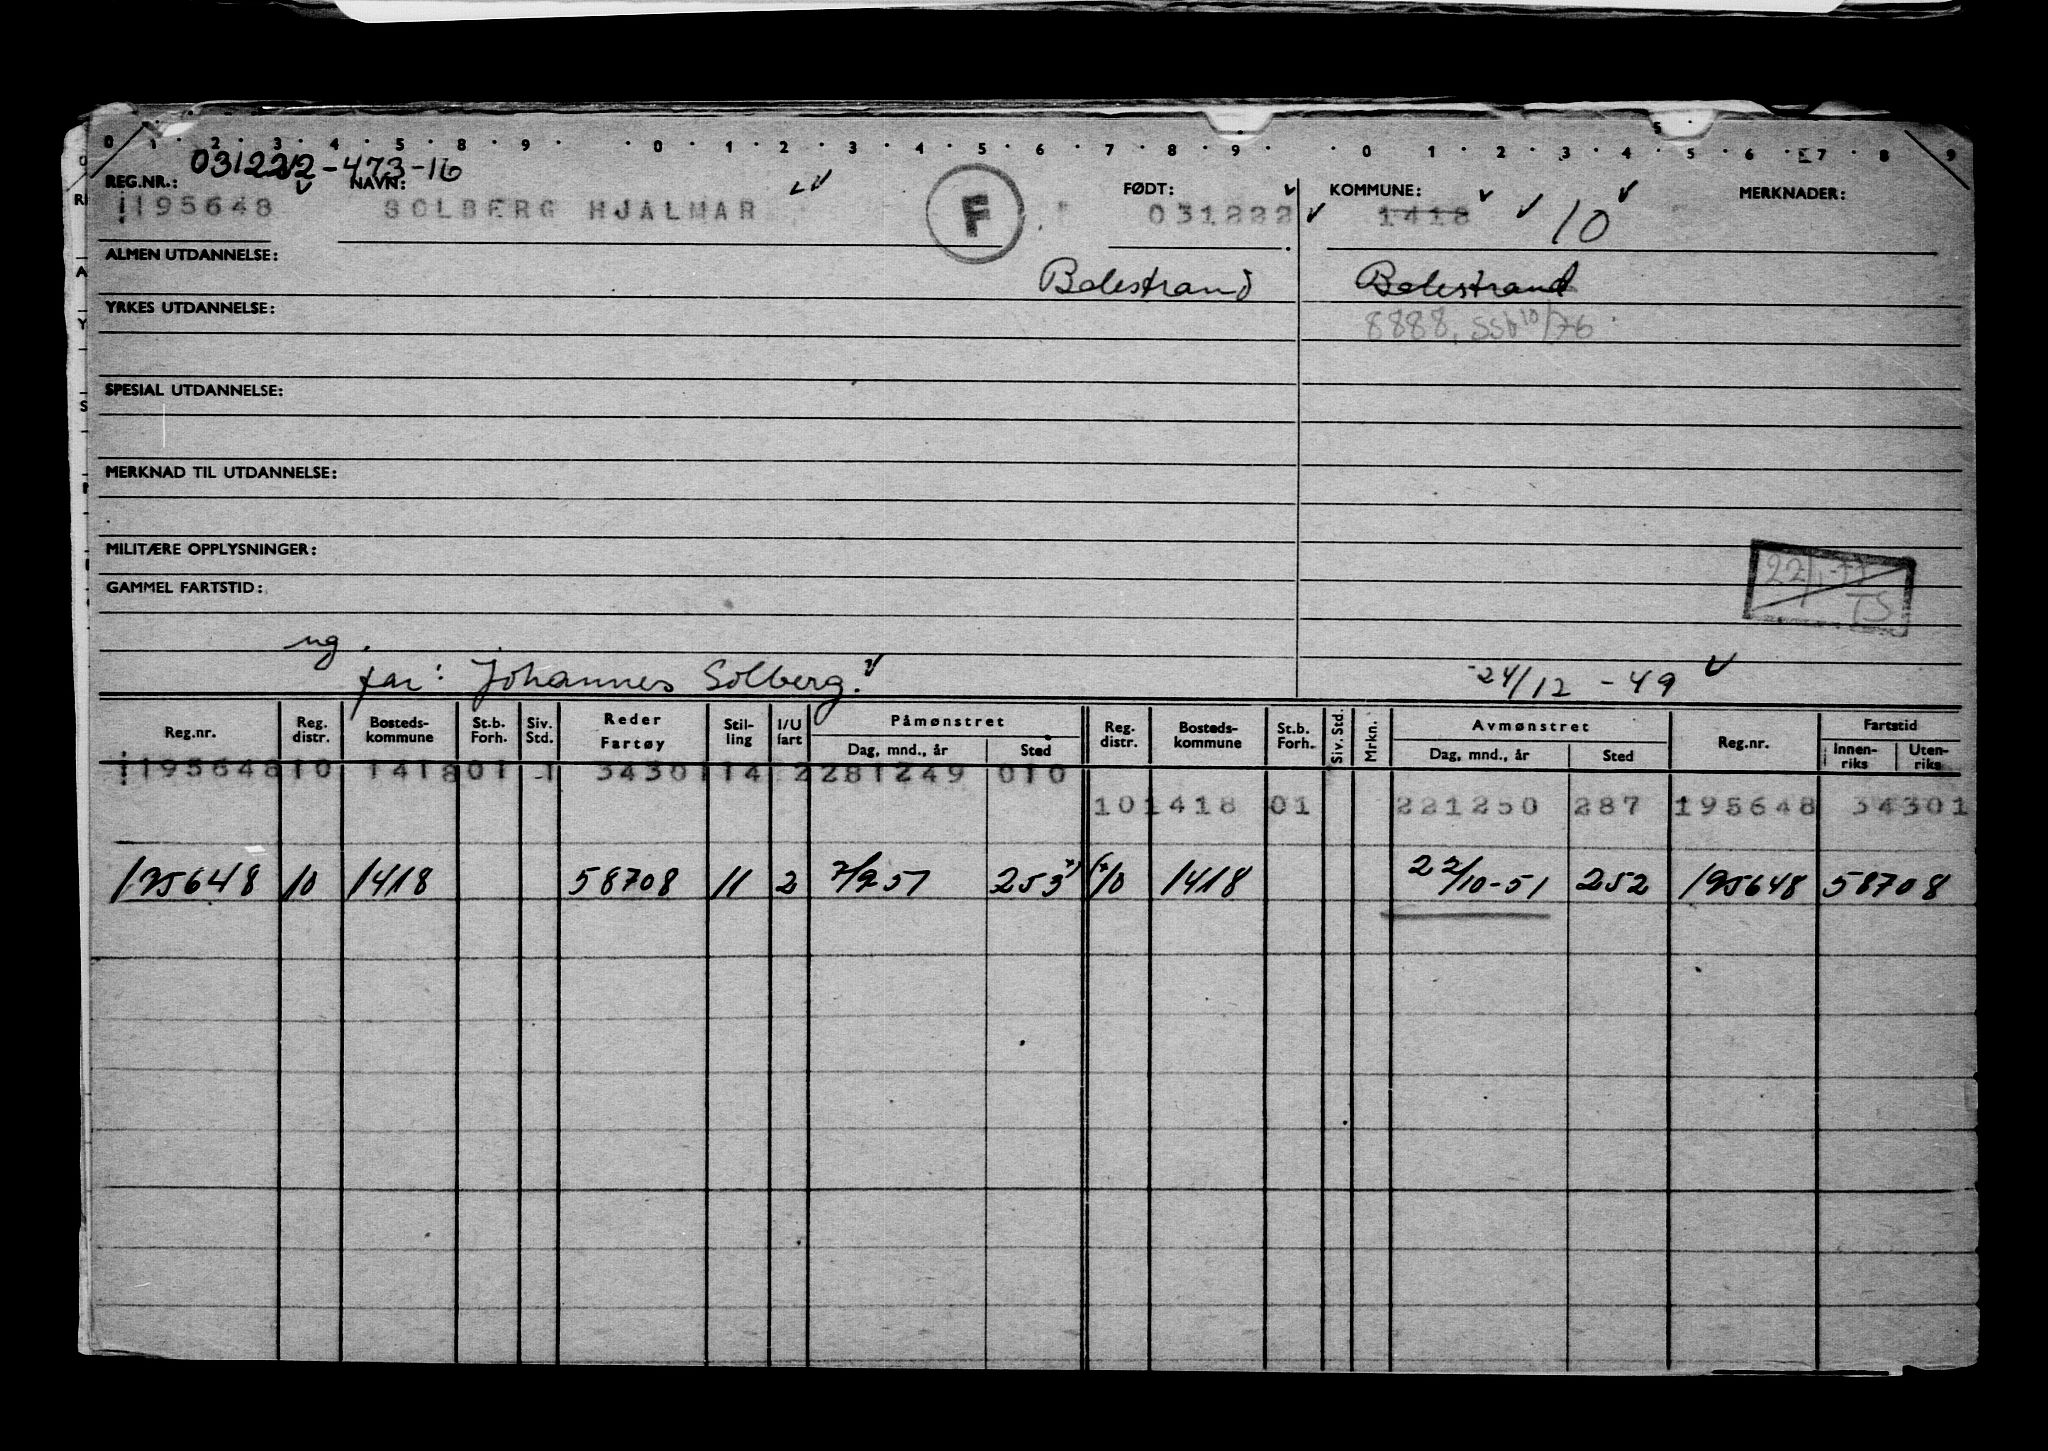 0 1 2 3 4 5 8 9 0 1 2 3 4 5 6 7 8 9 0 1 2 3 4 5 6 7 8 9
031222-473-16
REG.NR.: NAVN: FØDT: KOMMUNE: MERKNADER:
195648 SOLBERG HJALMAR F 031222 1418 10
ALMEN UTDANNELSE: Balestrand Balestrand
YRKES UTDANNELSE: 8888, SSb 10/76
SPESIAL UTDANNELSE:
MERKNAD TIL UTDANNELSE:
MILITÆRE OPPLYSNINGER:
GAMMEL FARTSTID:
TS
ug.
far: Johannes Solberg. 24/12 - 49
Reg.nr. Reg. distr. Bosteds- kommune St.b. Forh. Siv. Std. Reder Fartøy Stil- ling I/U fart Påmønstret Dag, mnd., år Sted Reg. distr. Bosteds- kommune St.b. Forh. Siv. Std. Mrkn. Avmønstret Dag, mnd., år Sted Reg.nr. Fartstid Innen- riks Uten- riks
195648 10 1418 01 1 34301 14 2 281249 010
10 1418 01 221250 287 195648 34301
195648 10 1418 58708 11 2 7/9 51 253 10 1418 22/10-51 252 195648 58708